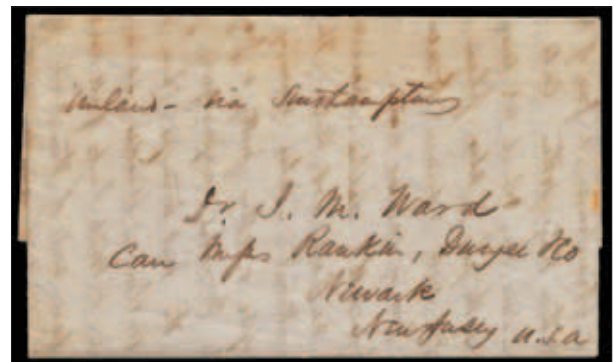 via Southampton
Dr. I. M. Ward
Care Messrs Rankin, Duryee & Co
Newark
New Jersey U.S.A